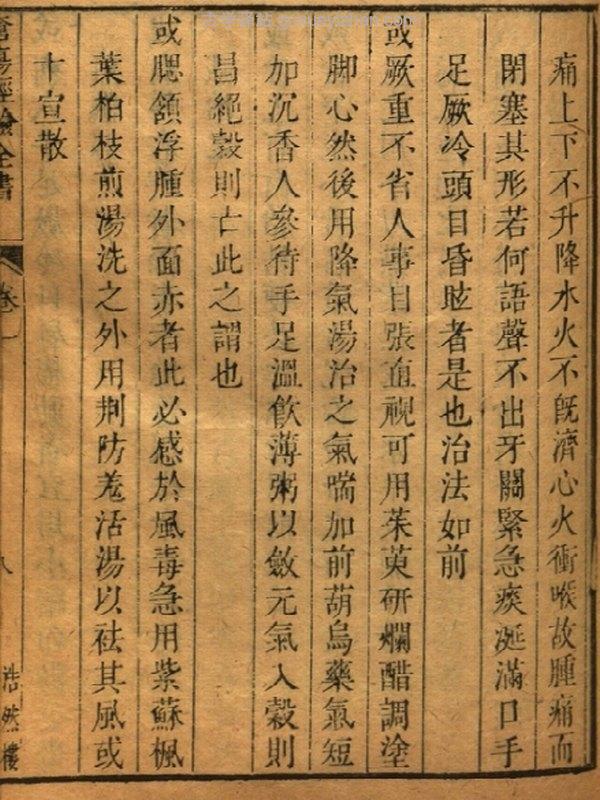 痛上下不升降水火不既濟心火衝喉故腫痛而
閉塞其形若何語聲不出牙關緊急痰涎滿口手
足厥冷頭目昏眩者是也治法如前
或厥重不省人事目張直視可用茱萸研爛醋調塗
脚心然後用降氣湯治之氣喘加前葫烏藥氣短
加沉香人參待手足溫飲薄粥以斂元氣入穀則
昌絕穀則亡此之謂也
或腮頷浮腫外面赤者此必感於風毒急用紫蘇楓
葉柏枝煎湯洗之外用荆防羗活湯以祛其風或
十宣散
瘡瘍經驗全書
卷一
八
浩然樓